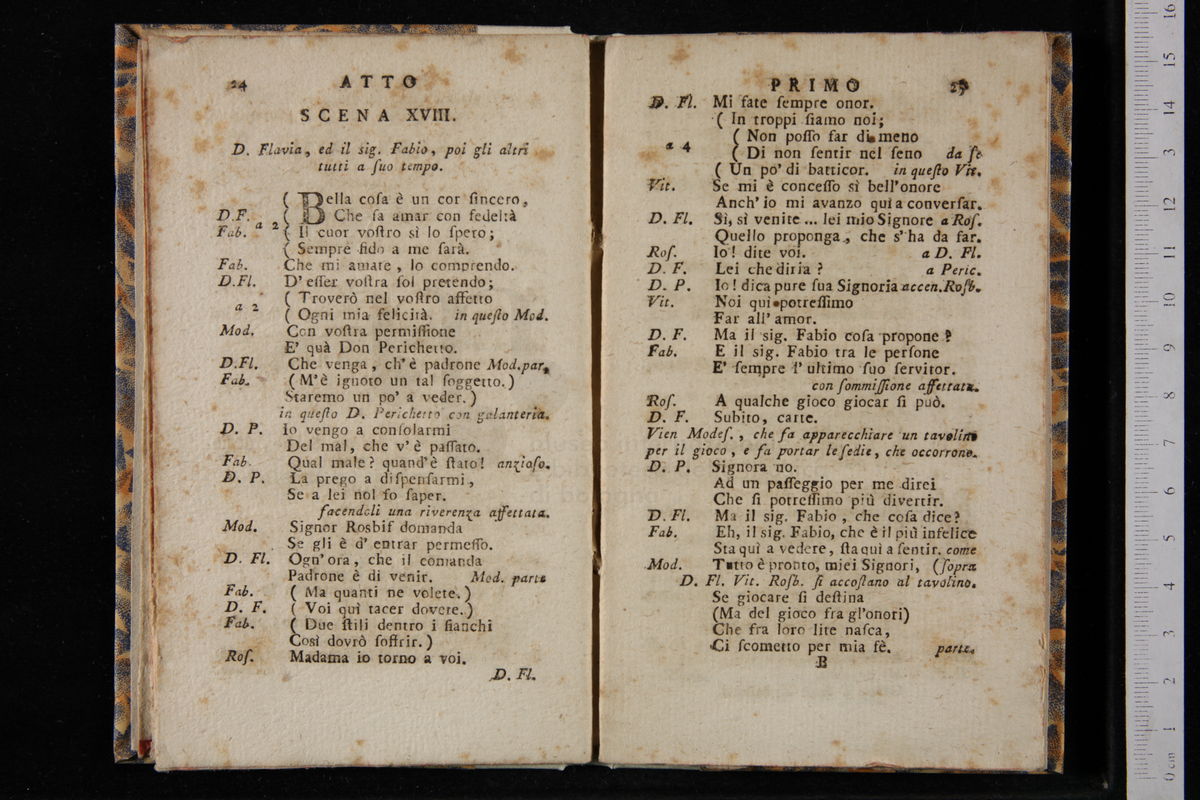 24 ATTO
SCENA XVIII.
D. Flavia, ed il sig. Fabio, poi gli altri
tutti a ſuo tempo.
( Bella coſa è un cor ſincero,
D.F. ( Che ſa amar con fedeltà
Fab. a 2 ( Il cuor voſtro sì lo ſpero;
( Sempre fido a me ſarà.
Fab. Che mi amate, lo comprendo.
D.Fl. D' eſſer voſtra ſol pretendo;
a 2 ( Troverò nel voſtro affetto
( Ogni mia felicità. in queſto Mod.
Mod. Con voſtra permiſſione
E' quà Don Perichetto.
D.Fl. Che venga, ch' è padrone Mod.par.
Fab. (M'è ignoto un tal ſoggetto.)
Staremo un po' a veder.)
in queſto D. Perichetto con galanteria.
D. P. Io vengo a conſolarmi
Del mal, che v' è paſſato.
Fab. Qual male? quand'è ſtato! anzioſo.
D. P. La prego a diſpenſarmi,
Se a lei nol ſo ſaper.
facendoli una riverenza affettata.
Mod. Signor Rosbif domanda
Se gli è d' entrar permeſſo.
D. Fl. Ogn' ora, che il comanda
Padrone è di venir. Mod. parte
Fab. ( Ma quanti ne volete.)
D. F. ( Voi quì tacer dovete.)
Fab. ( Due ſtili dentro i fianchi
Così dovrò ſoffrir.)
Roſ. Madama io torno a voi.
D. Fl.
PRIMO 25
D. Fl. Mi fate ſempre onor.
( In troppi ſiamo noi;
( Non poſſo far di meno
a 4 ( Di non ſentir nel ſeno da ſe
( Un po' di batticor. in queſto Vit.
Vit. Se mi è conceſſo sì bell'onore
Anch' io mi avanzo quì a converſar.
D. Fl. Sì, sì venite ... lei mio Signore a Roſ.
Quello proponga, che s' ha da far.
Roſ. Io! dite voi. a D. Fl.
D. F. Lei che diria? a Peric.
D. P. Io! dica pure ſua Signoria accen.Roſb.
Vit. Noi quì potreſſimo
Far all' amor.
D. F. Ma il sig. Fabio coſa propone?
Fab. E il sig. Fabio tra le perſone
E' ſempre l' ultimo ſuo ſervitor.
con ſommiſſione affettata.
Roſ. A qualche gioco giocar ſi può.
D. F. Subito, carte.
Vien Modeſ., che fa apparecchiare un tavolino
per il gioco, e fa portar le ſedie, che occorrono.
D. P. Signora no.
Ad un paſſeggio per me direi
Che ſi potreſſimo più divertir.
D. Fl. Ma il sig. Fabio, che coſa dice?
Fab. Eh, il sig. Fabio, che è il più infelice
Sta quì a vedere, ſta quì a ſentir. come
Mod. Tutto è pronto, miei Signori, (ſopra
D. Fl. Vit. Roſb. ſi accoſtano al tavolino.
Se giocare ſi deſtina
(Ma del gioco fra gl'onori)
Che fra loro lite naſca,
Ci ſcometto per mia fè. parte.
B
0 cm 1 2 3 4 5 6 7 8 9 10 11 12 13 14 15 16